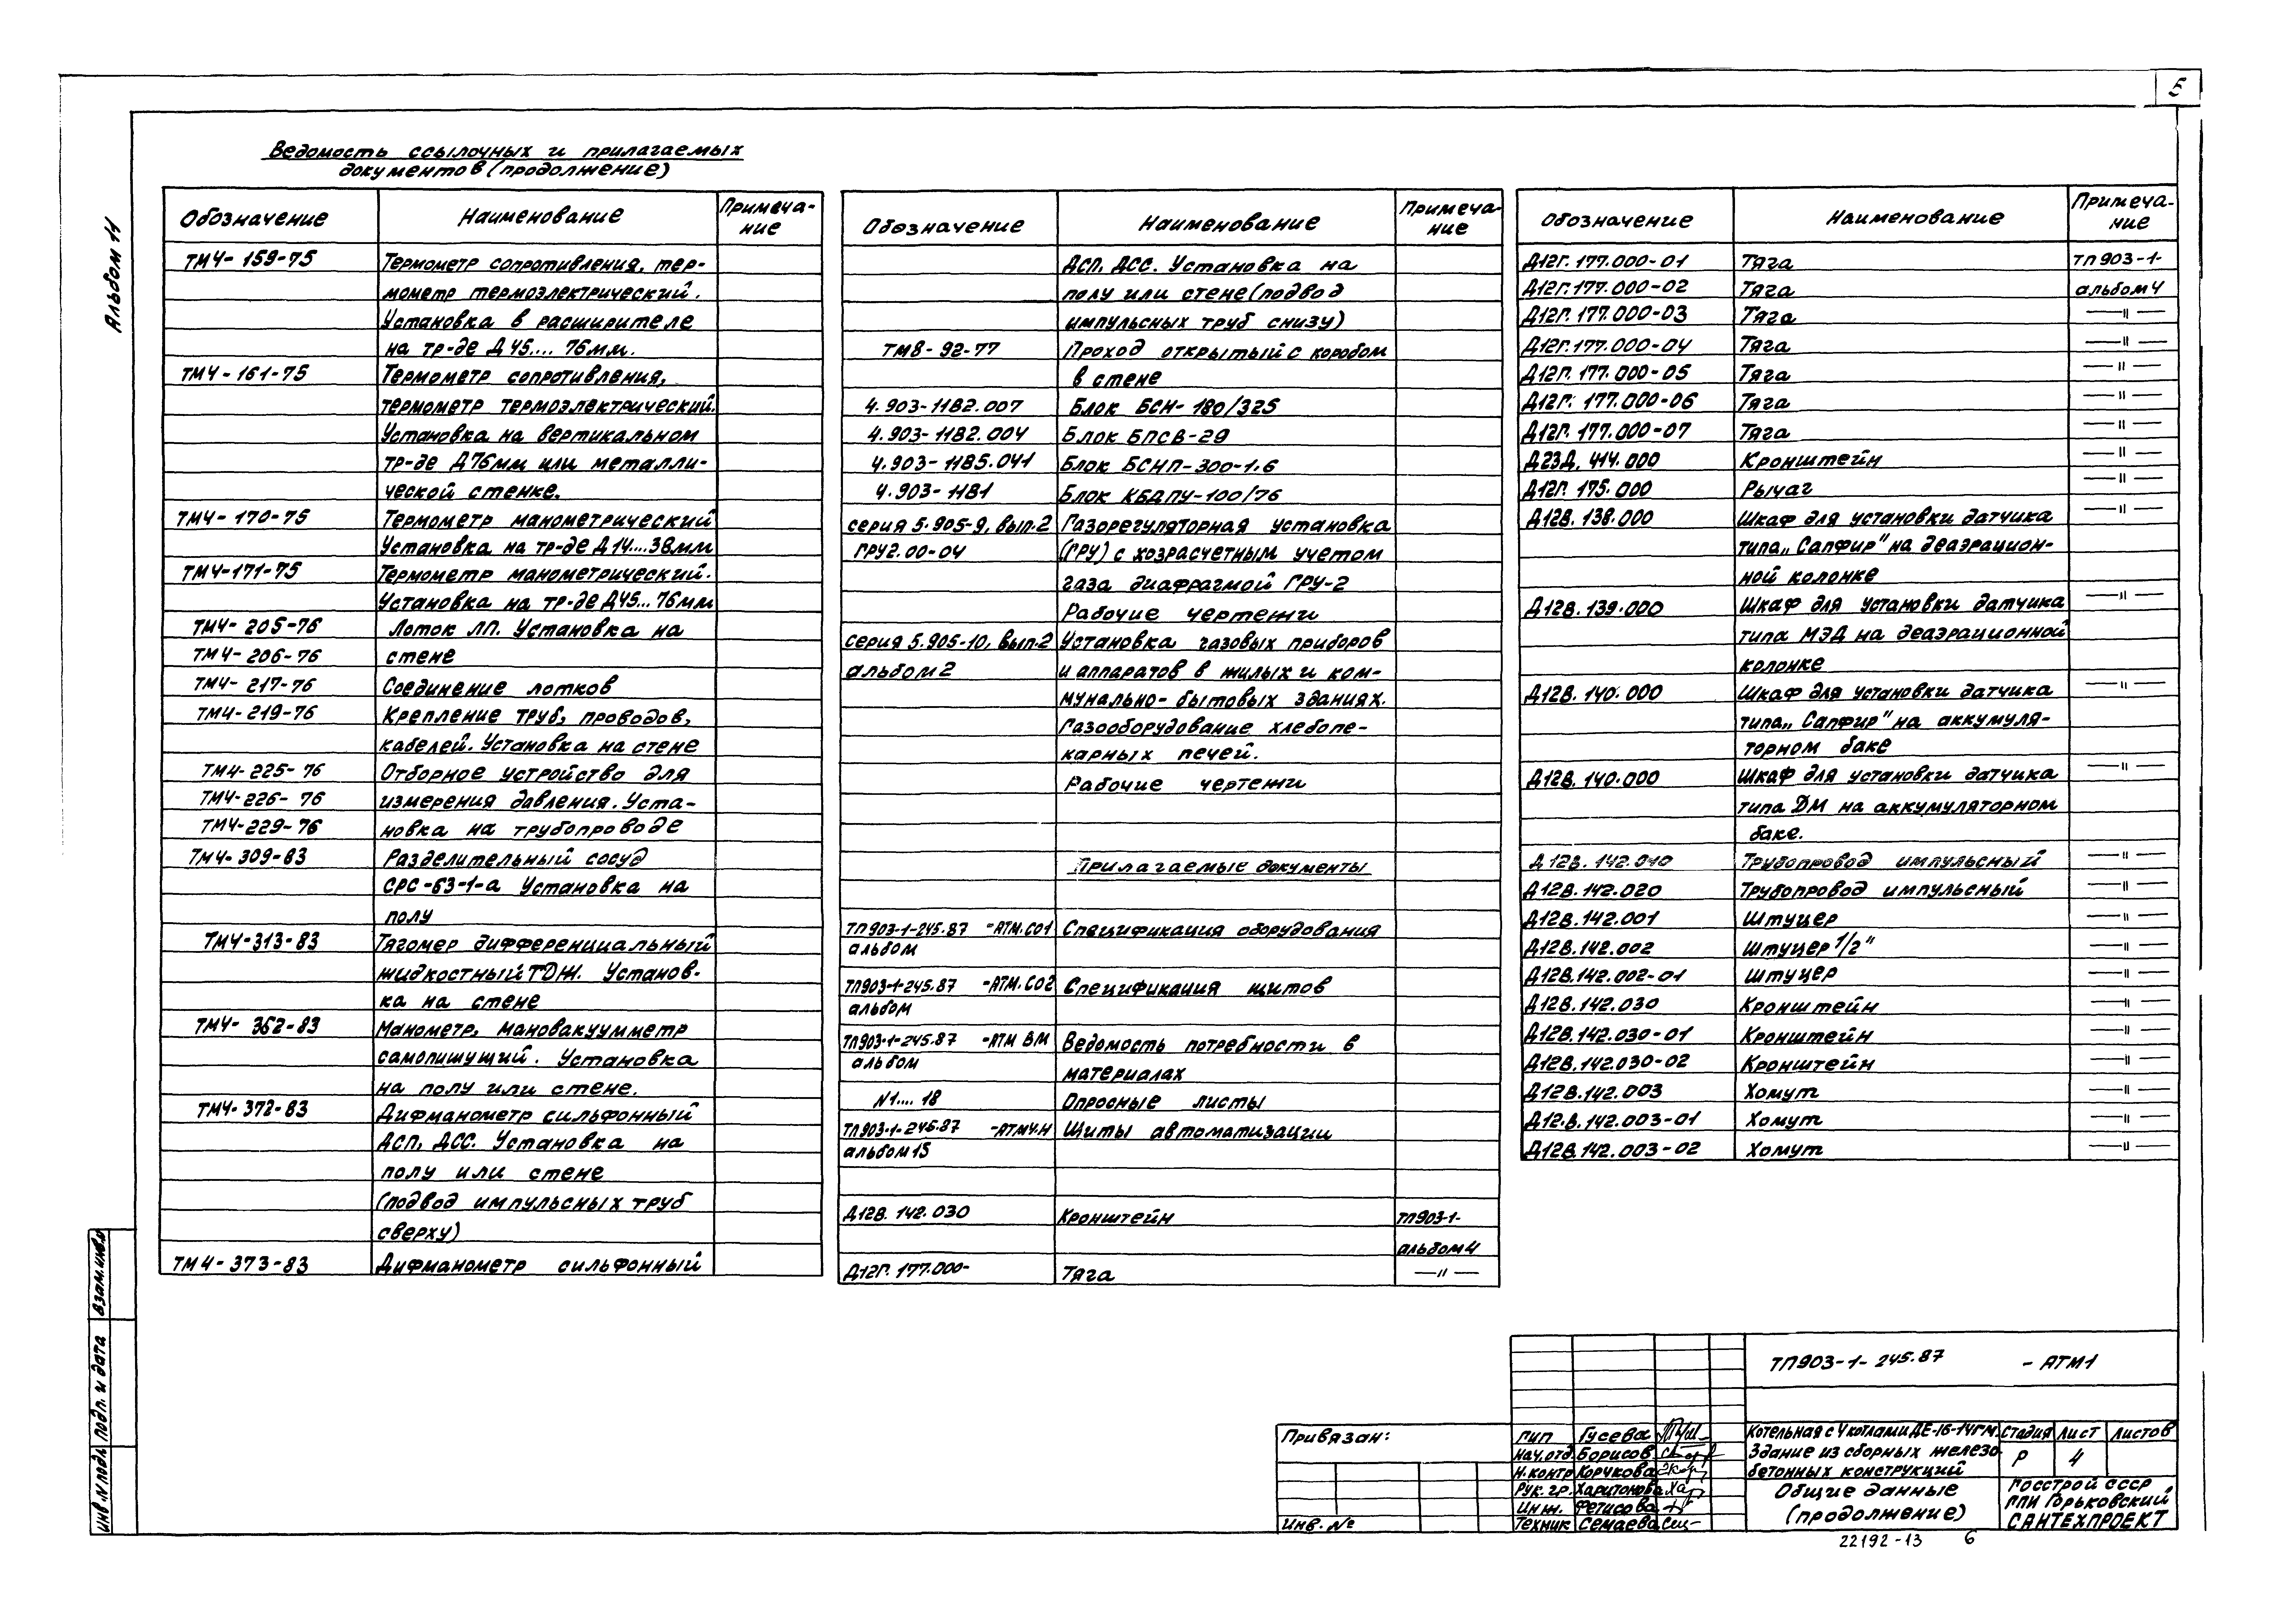 5
Альбом 11
Ведомость ссылочных и прилагаемых
документов (продолжение)
Обозначение Наименование Примеча-
ние
ТМ4-159-75 Термометр сопротивления, тер-
мометр термоэлектрический.
Установка в расширителе
на тр-де Д45.... 76мм.
ТМ4-161-75 Термометр сопротивления,
термометр термоэлектрический.
Установка на вертикальном
тр-де Д76мм или металли-
ческой стенке.
ТМ4-170-75 Термометр манометрический
Установка на тр-де Д14...38мм
ТМ4-171-75 Термометр манометрический.
Установка на тр-де Д45...76мм
ТМ4-205-76 Лоток ЛП. Установка на
ТМ4-206-76 стене
ТМ4-217-76 Соединение лотков
ТМ4-219-76 Крепление труб, проводов,
кабелей. Установка на стене
ТМ4-225-76 Отборное устройство для
ТМ4-226-76 измерения давления. Уста-
ТМ4-229-76 новка на трубопроводе
ТМ4-309-83 Разделительный сосуд
СРС-63-1-а Установка на
полу
ТМ4-313-83 Тягомер дифференциальный
жидкостный ТДЖ. Установ-
ка на стене
ТМ4-352-83 Манометр, мановакуумметр
самопишущий. Установка
на полу или стене.
ТМ4-372-83 Дифманометр сильфонный
ДСП, ДСС. Установка на
полу или стене
(подвод импульсных труб
сверху)
ТМ4-373-83 Дифманометр сильфонный
Обозначение Наименование Примеча-
ние
ДСП, ДСС. Установка на
полу или стене (подвод
импульсных труб снизу)
ТМ8-92-77 Проход открытый с коробом
в стене
4.903-11В2.007 Блок БСН-180/325
4.903-11В2.004 Блок БПСВ-29
4.903-11В5.041 Блок БСНП-300-1.6
4.903-11В1 Блок КБДПУ-100/76
серия 5.905-9, вып.2 Газорегуляторная установка
ГРУ2.00-04 (ГРУ) с хозрасчетным учетом
газа диафрагмой ГРУ-2
Рабочие чертежи
серия 5.905-10, вып.2 Установка газовых приборов
альбом 2 и аппаратов в жилых и ком-
мунально-бытовых зданиях.
Газооборудование хлебопе-
карных печей.
Рабочие чертежи
Прилагаемые документы
ТП903-1-245.87 -АТМ.СО1 Спецификация оборудования
альбом
ТП903-1-245.87 -АТМ.СО2 Спецификация щитов
альбом
ТП903-1-245.87 -АТМ ВМ Ведомость потребности в
альбом материалах
N1.... 18 Опросные листы
ТП903-1-245.87 -АТМ4.Н Щиты автоматизации
альбом 15
Д12В.142.030 Кронштейн ТП903-1-
альбом 4
Д12Г.177.000- Тяга —"—
Обозначение Наименование Примеча-
ние
Д12Г.177.000-01 Тяга ТП903-1-
Д12Г.177.000-02 Тяга альбом 4
Д12Г.177.000-03 Тяга —"—
Д12Г.177.000-04 Тяга —"—
Д12Г.177.000-05 Тяга —"—
Д12Г.177.000-06 Тяга —"—
Д12Г.177.000-07 Тяга —"—
Д23Д.414.000 Кронштейн —"—
Д12Г.175.000 Рычаг —"—
Д12В.138.000 Шкаф для установки датчика —"—
типа „Сапфир" на деаэрацион-
ной колонке
Д12В.139.000 Шкаф для установки датчика —"—
типа МЭД на деаэрационной
колонке
Д12В.140.000 Шкаф для установки датчика —"—
типа „Сапфир" на аккумуля-
торном баке
Д12В.140.000 Шкаф для установки датчика —"—
типа ДМ на аккумуляторном
баке.
Д12В.142.010 Трубопровод импульсный —"—
Д12В.142.020 Трубопровод импульсный —"—
Д12В.142.001 Штуцер —"—
Д12В.142.002 Штуцер 1/2" —"—
Д12В.142.002-01 Штуцер —"—
Д12В.142.030 Кронштейн —"—
Д12В.142.030-01 Кронштейн —"—
Д12В.142.030-02 Кронштейн —"—
Д12В.142.003 Хомут —"—
Д12.В.142.003-01 Хомут —"—
Д12В.142.003-02 Хомут —"—
Взам.инв.№
Подп. и дата
Инв.№подл.
Привязан:
Инв. №
ТП903-1-245.87 -АТМ1
ГИП Гусева
Нач.отд. Борисов
Н.контр Корчкова
Рук.гр. Харитонова
Инж. Фетисова
Техник Семаева
Котельная с 4 котлами ДЕ-16-14ГМ.
Здание из сборных железо-
бетонных конструкций
Стадия Лист Листов
Р 4
Общие данные
(продолжение)
Госстрой СССР
ГПИ Горьковский
САНТЕХПРОЕКТ
22192-13 6